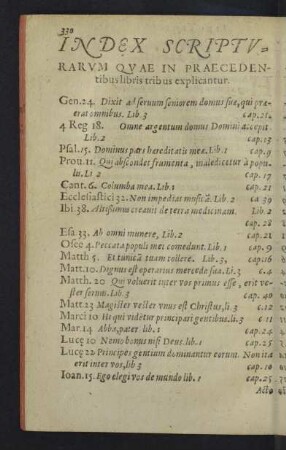 330
INDEX SCRIPTV-
RARVM QVAE IN PRAECEDEN-
tibus libris tribus explicantur.
Gen. 24. Dixit ad seruum seniorem domus suæ, qui præ-
erat omnibus. Lib. 3 cap. 21.
4 Reg 18. Omne argentum domus Domini accepit
Lib. 2 cap. 13
Psal. 5. Dominus pars hæreditatis meæ. Lib. 1 cap. 9
Prou. 11. Qui abscondet frumenta, maledicetur à popu-
lu. Li 2 cap. 17
Cant. 6. Columba mea. Lib. 1 cap. 21
Ecclesiastici 32. Non impedias musicã. Lib. 2 cap. 22
Ibi. 38. Altissimus creauit de terra medicinam. Lib. 2
cap. 28
Esa 33. Ab omni munere, Lib. 2 cap. 21
Osee 4. Peccata populi mei comedunt. Lib. 1 cap. 9
Matth 5. Et tunicã tuam tollere. Lib. 3, cap. 16
Matt. 10. Dignus est operarius mercede sua. Li. 3 c. 4
Matth. 20 Qui voluerit inter vos primus esse, erit ve-
ster seruus. Lib. 3 cap. 40
Matt 23 Magister vester vnus est Christus, li 3 c. 12
Marci 10 Hi qui vidētur principari gentibus. li. 3 c 11
Mar. 14 Abba, pater. lib. 1 cap. 24
Lucę 10 Nemo bonus nisi Deus. lib. 1 cap. 25
Lucę 22 Principes gentium dominantur eorum. Non ita
erit inter vos, lib 3 cap. 10
Ioan. 15. Ego elegi vos de mundo lib. 1 cap. 25
Acto